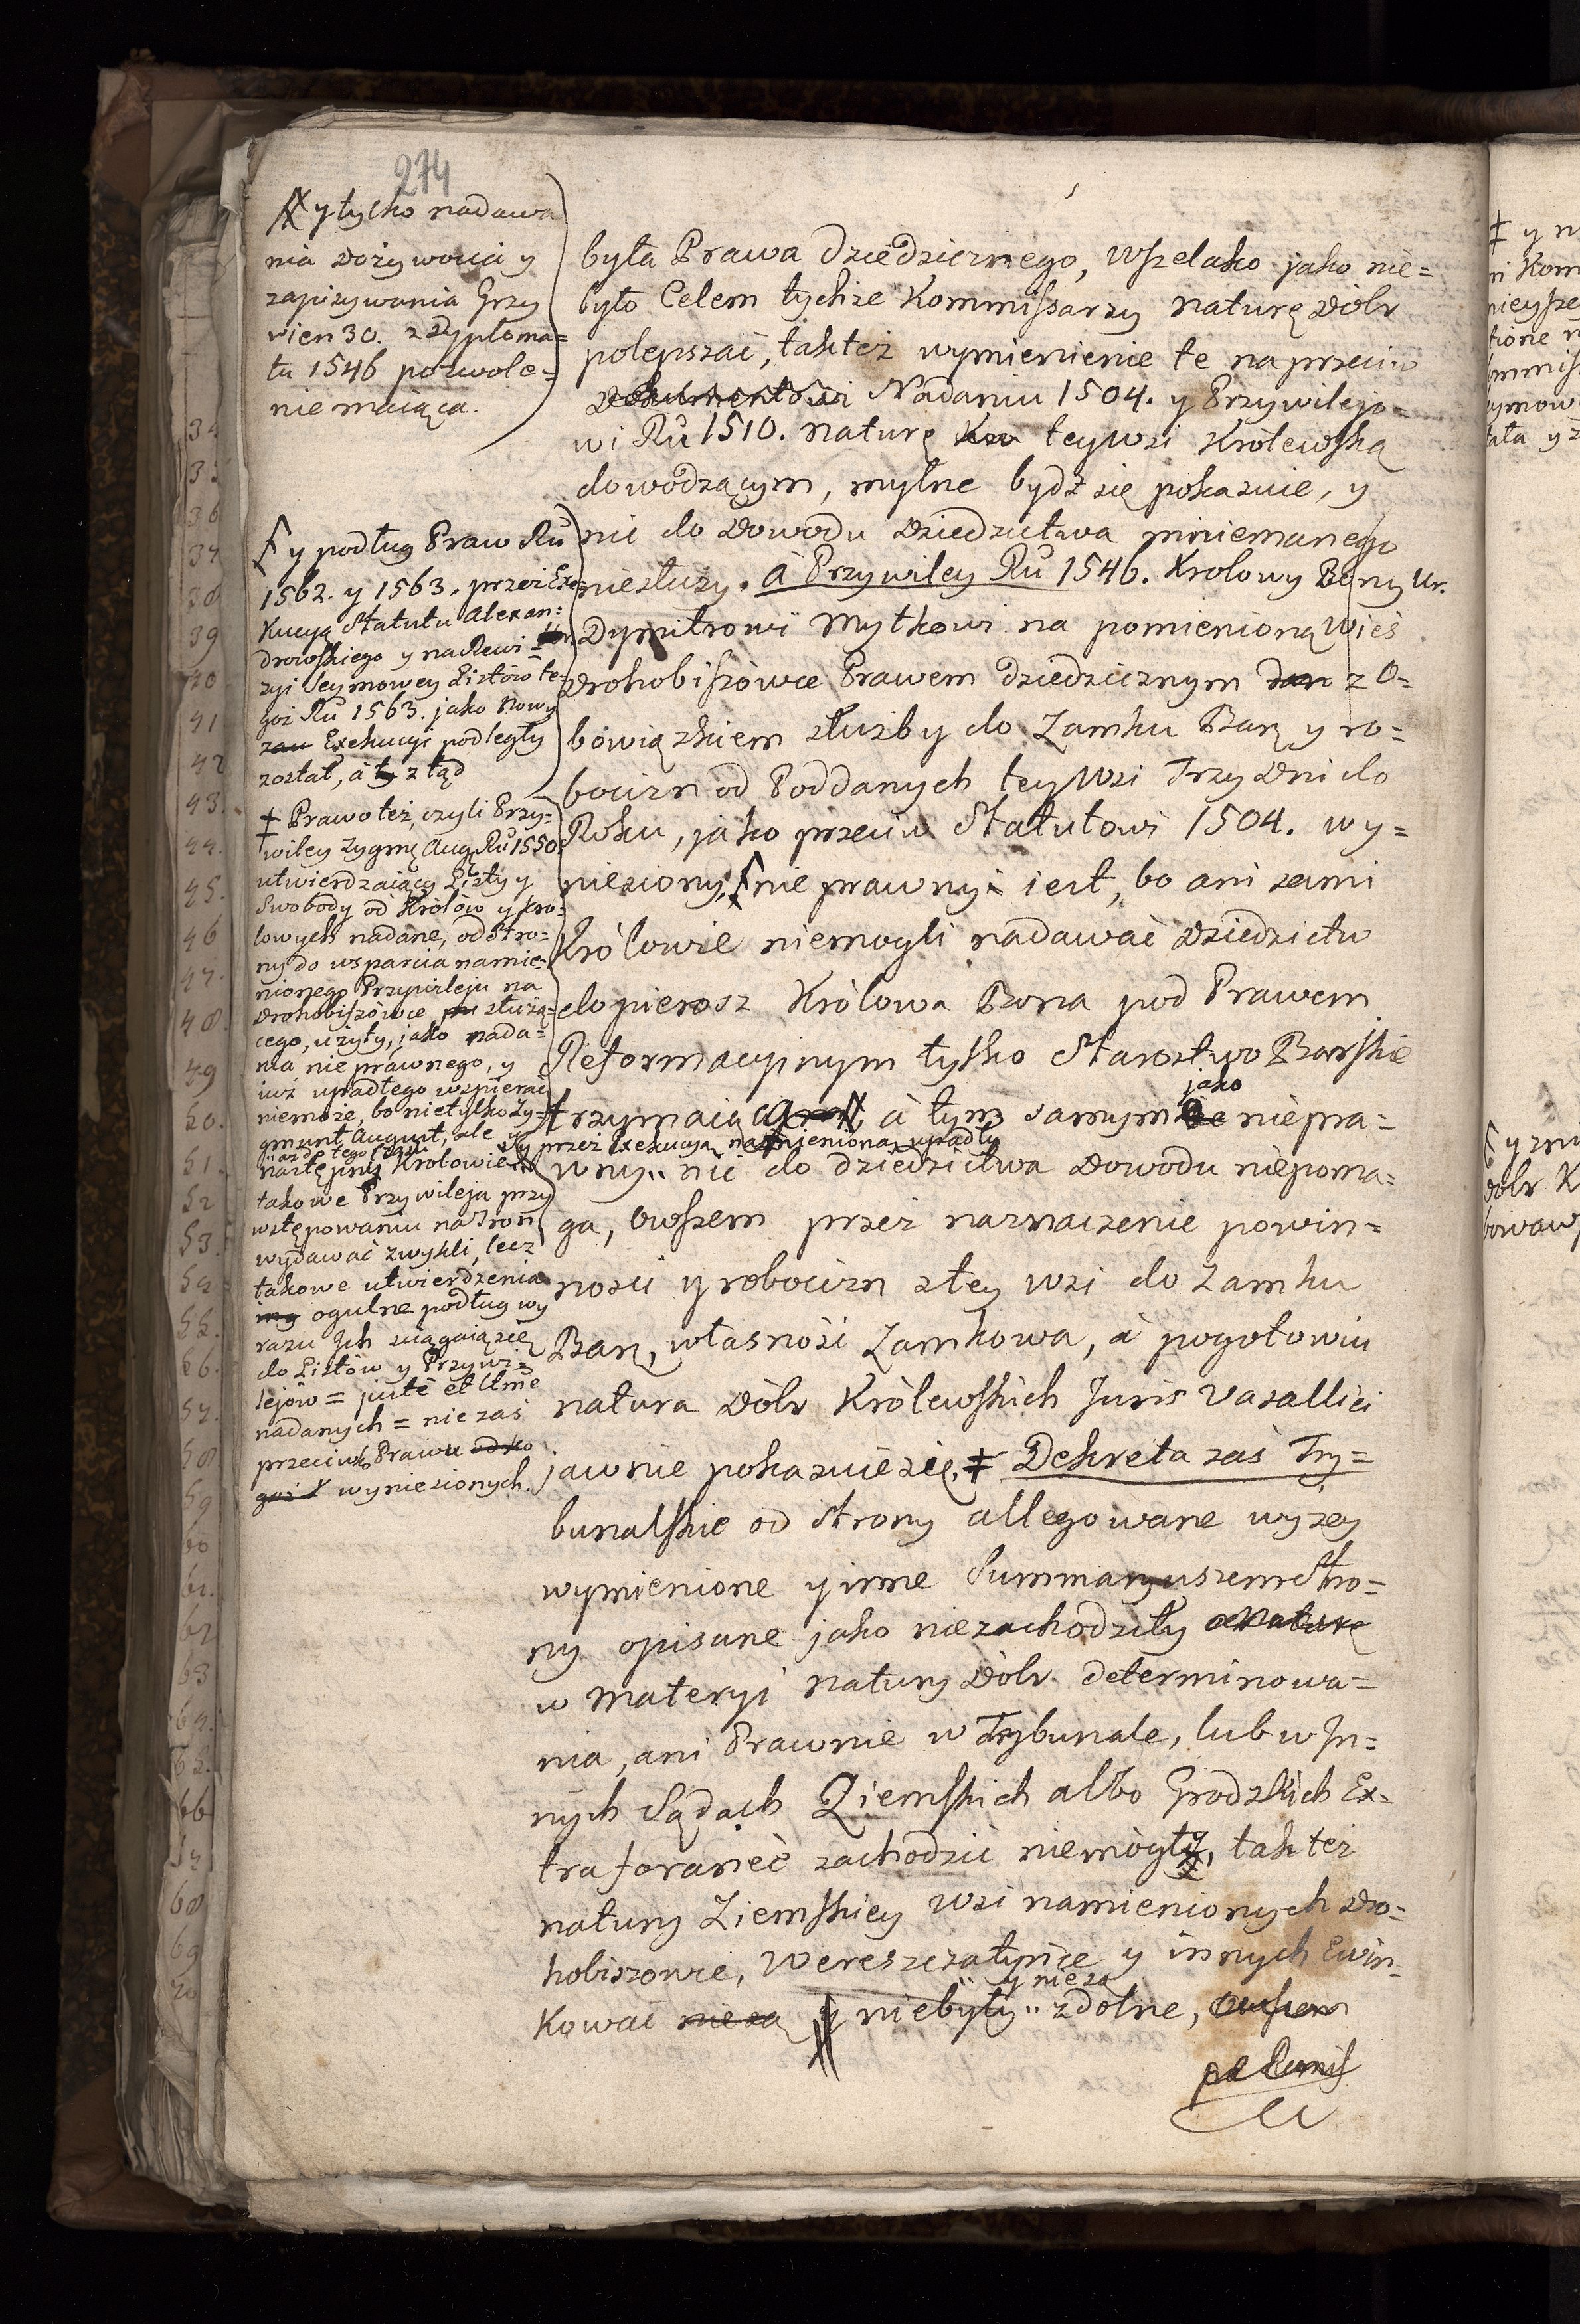 274
y tylko nadawa
nia Dożywocia y
zapisywania Grzy
wien 30. z Dyploma=
tu 1546 pozwole=
nie mająca.
y podług Praw Ru
1562. y 1563. przez Exe=
kucyą Statutu Alexan=
drowskiego y na Rewi=
zyi Seymowey Listów te=
goż Ru 1563. jako Nowy
Exekucyi podległy
został, à ztąd
‡ Prawo też, czyli Przy=
wiley Zygmę Augę Ru 1550.
utwierdzaiący Listy y
Swobody od Królów y Kro=
lowych nadane, od Stro=
ny do wsparcia namie=
nionego Przywileju na
Drohobiszówce służą=
cego, użyty, jako nada=
nia nieprawnego, y
iuż upadłego wspierać
niemoże, bo nietylko Zy=
gmunt August, ale y
następni Królowie
takowe Przywileja przy
wstępowaniu na Tron
wydawać zwykli, lecz
takowe utwierdzenia
ogulne podług wy
razu Jch sciągaią się
do Listów y Przywi=
lejów = justè et Ltmè
nadanych = nie zaś
przeciwko Prawu
wyniesionych.
była Prawa dziedzicznego, Wszelako jako nie=
było Celem tychże Kommissarzy naturę Dóbr
polepszać, takteż wymienienie te naprzeciw
Dokumentowi Nadaniu 1504. y Przywilejo=
wi Ru 1510. naturę tey Wsi Królewską
dowodzącym, mylne bydź się pokazuie, y
nic do Dowodu Dziedzictwa mniemanego
niesłuży. à Przywiley Ru 1546. Krolowy Bony Ur.
Dymitrowi Mytkowi na pomienioną Wieś
Drohobiszówce Prawem dziedzicznym z O=
bowiązkiem służby do Zamku Barę y ro=
bocizn od Poddanych tey Wsi Trzy Dni do
Roku, jako przeciw Statutowi 1504. wy=
niesiony, nie prawny iest, bo ani sami
Królowie niemogli nadawać Dziedzictw
dopierosz Królowa Bona pod Prawem
Reformacyinym tylko Starostwo Barskie
trzymaiąca, à tym samym jako niepra=
przez Exekucyą namienioną upadły
wny .. nic do dziedzictwa Dowodu niepoma=
ga, owszem przez naznaczenie powin=
ności y robocizn z tey Wsi do Zamku
Barę, własność Zamkowa, à pogotowiu
natura Dóbr Królewskich Juris Vasallici
jawnie pokazuie się. ‡ Dekreta zaś Try=
bunalskie od Strony allegowane wyżey
wymienione y inne Summaryuszem Stro=
ny opisane jako niezachodziły
w Materyi natury Dóbr determinowa=
nia, ani Prawnie w Trybunale, lub w Jn=
nych Sądach Ziemskich albo Grodzkich Ex=
traforaneè zachodzić niemògły, tak też
natury Ziemskiey Wsi namienionych Dro=
hobiszowce, Wereszczatyńce y innych Ewin=
y nie są
kować y niebyły .. zdolne,